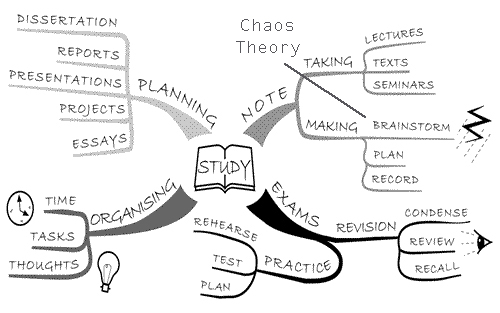 DISSERTATION
REPORTS
PRESENTATIONS
PROJECTS
ESSAYS
PLANNING
Chaos
Theory
NOTE
TAKING
LECTURES
TEXTS
SEMINARS
MAKING
BRAINSTORM
PLAN
RECORD
STUDY
ORGANISING
TIME
TASKS
THOUGHTS
EXAMS
REHEARSE
TEST
PLAN
PRACTICE
REVISION
CONDENSE
REVIEW
RECALL